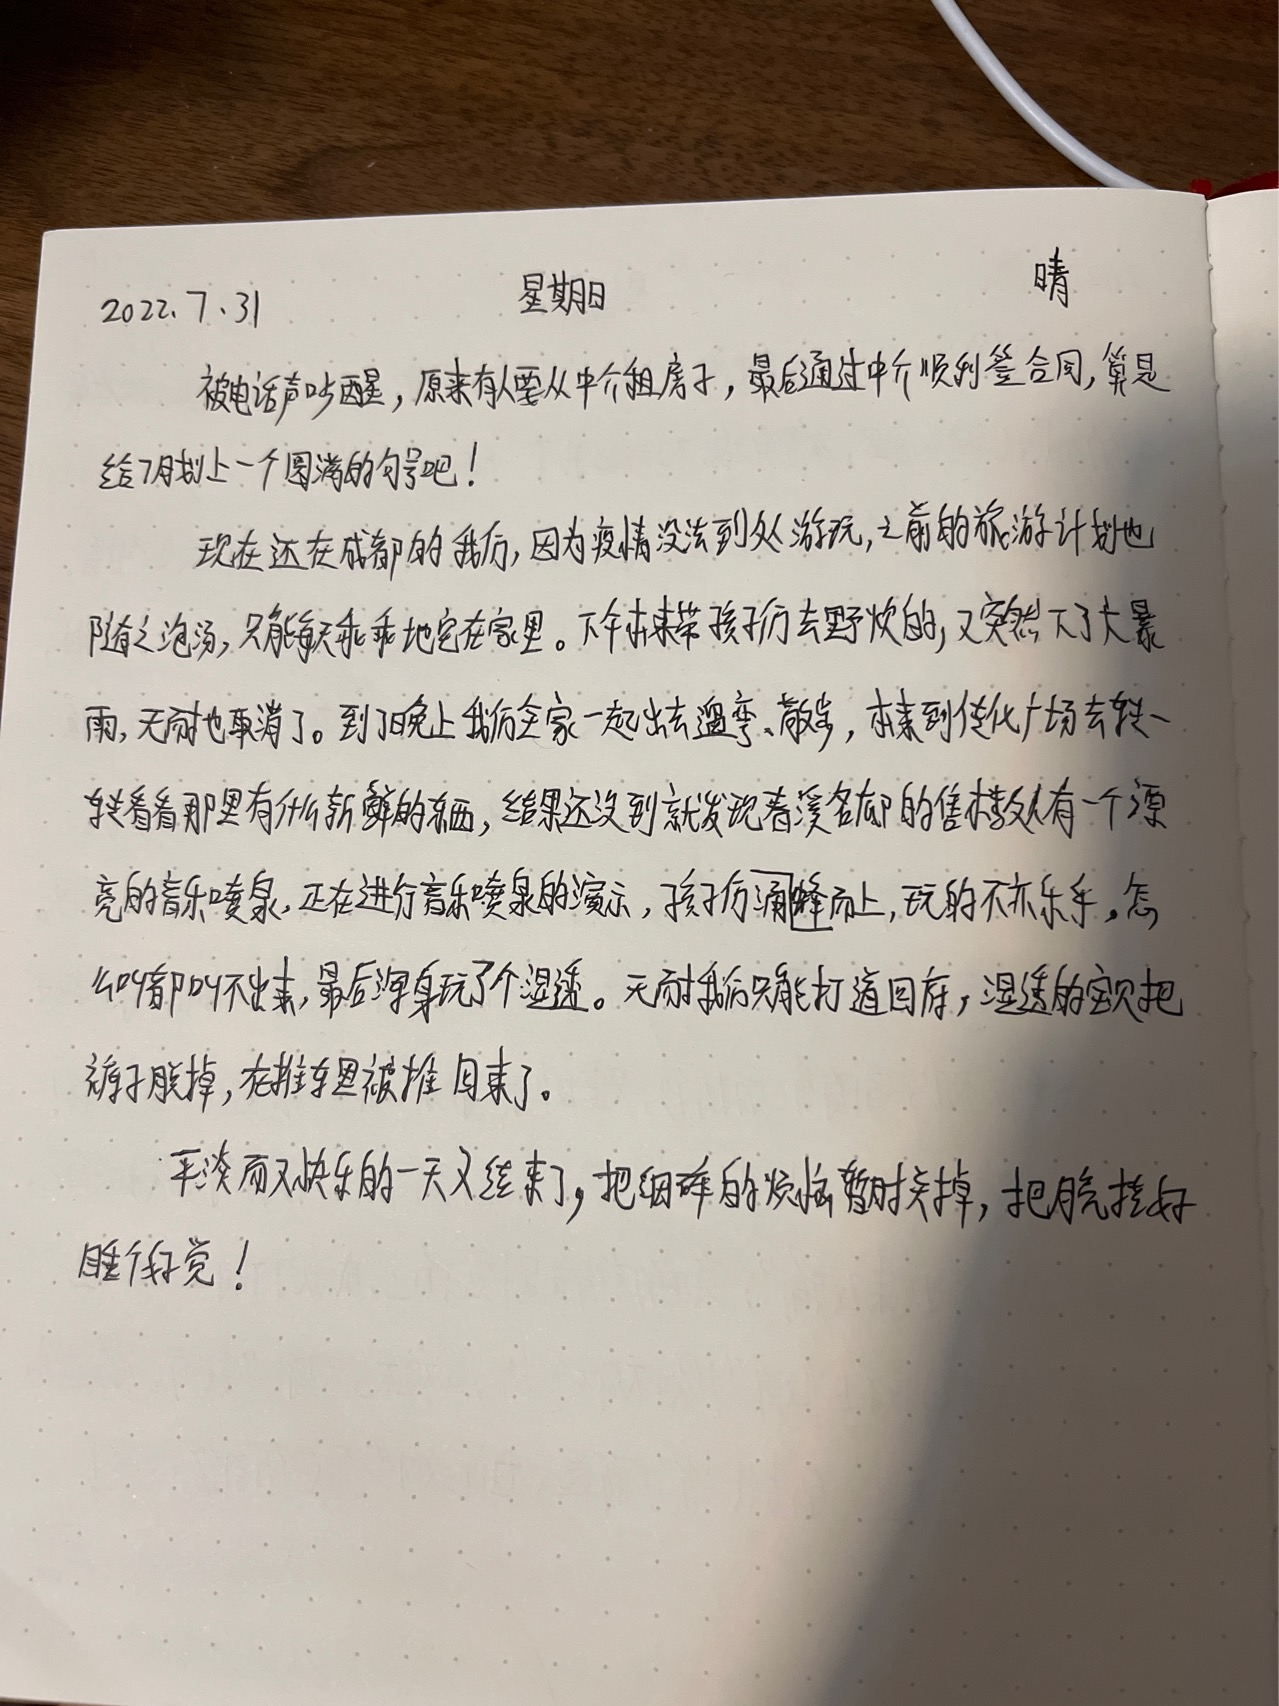 2022.7.31 星期日 晴
被电话声吵醒，原来有人要从中介租房子，最后通过中介顺利签合同，算是
给7月划上一个圆满的句号吧！
现在还在成都的我们，因为疫情没法到处游玩，之前的旅游计划也
随之泡汤，只能每天乖乖地宅在家里。下午本来带孩子们去野炊的，又突然下了大暴
雨，无耐也取消了。到了晚上我们全家一起出去遛弯、散步，本来到佳化广场去转一
转看看那里有什么新鲜的东西，结果还没到就发现麓溪名邸的售楼处有一个漂
亮的音乐喷泉，正在进行音乐喷泉的演示，孩子们涌蜂而上，玩的不亦乐乎，怎
么叫都叫不出来，最后浑身玩了个湿透。无耐我们只能打道回府，湿透的宝贝把
裤子脱掉，在推车里被推回来了。
平淡而又快乐的一天又结束了，把细碎的烦恼暂时关掉，把月亮挂好
睡个好觉！